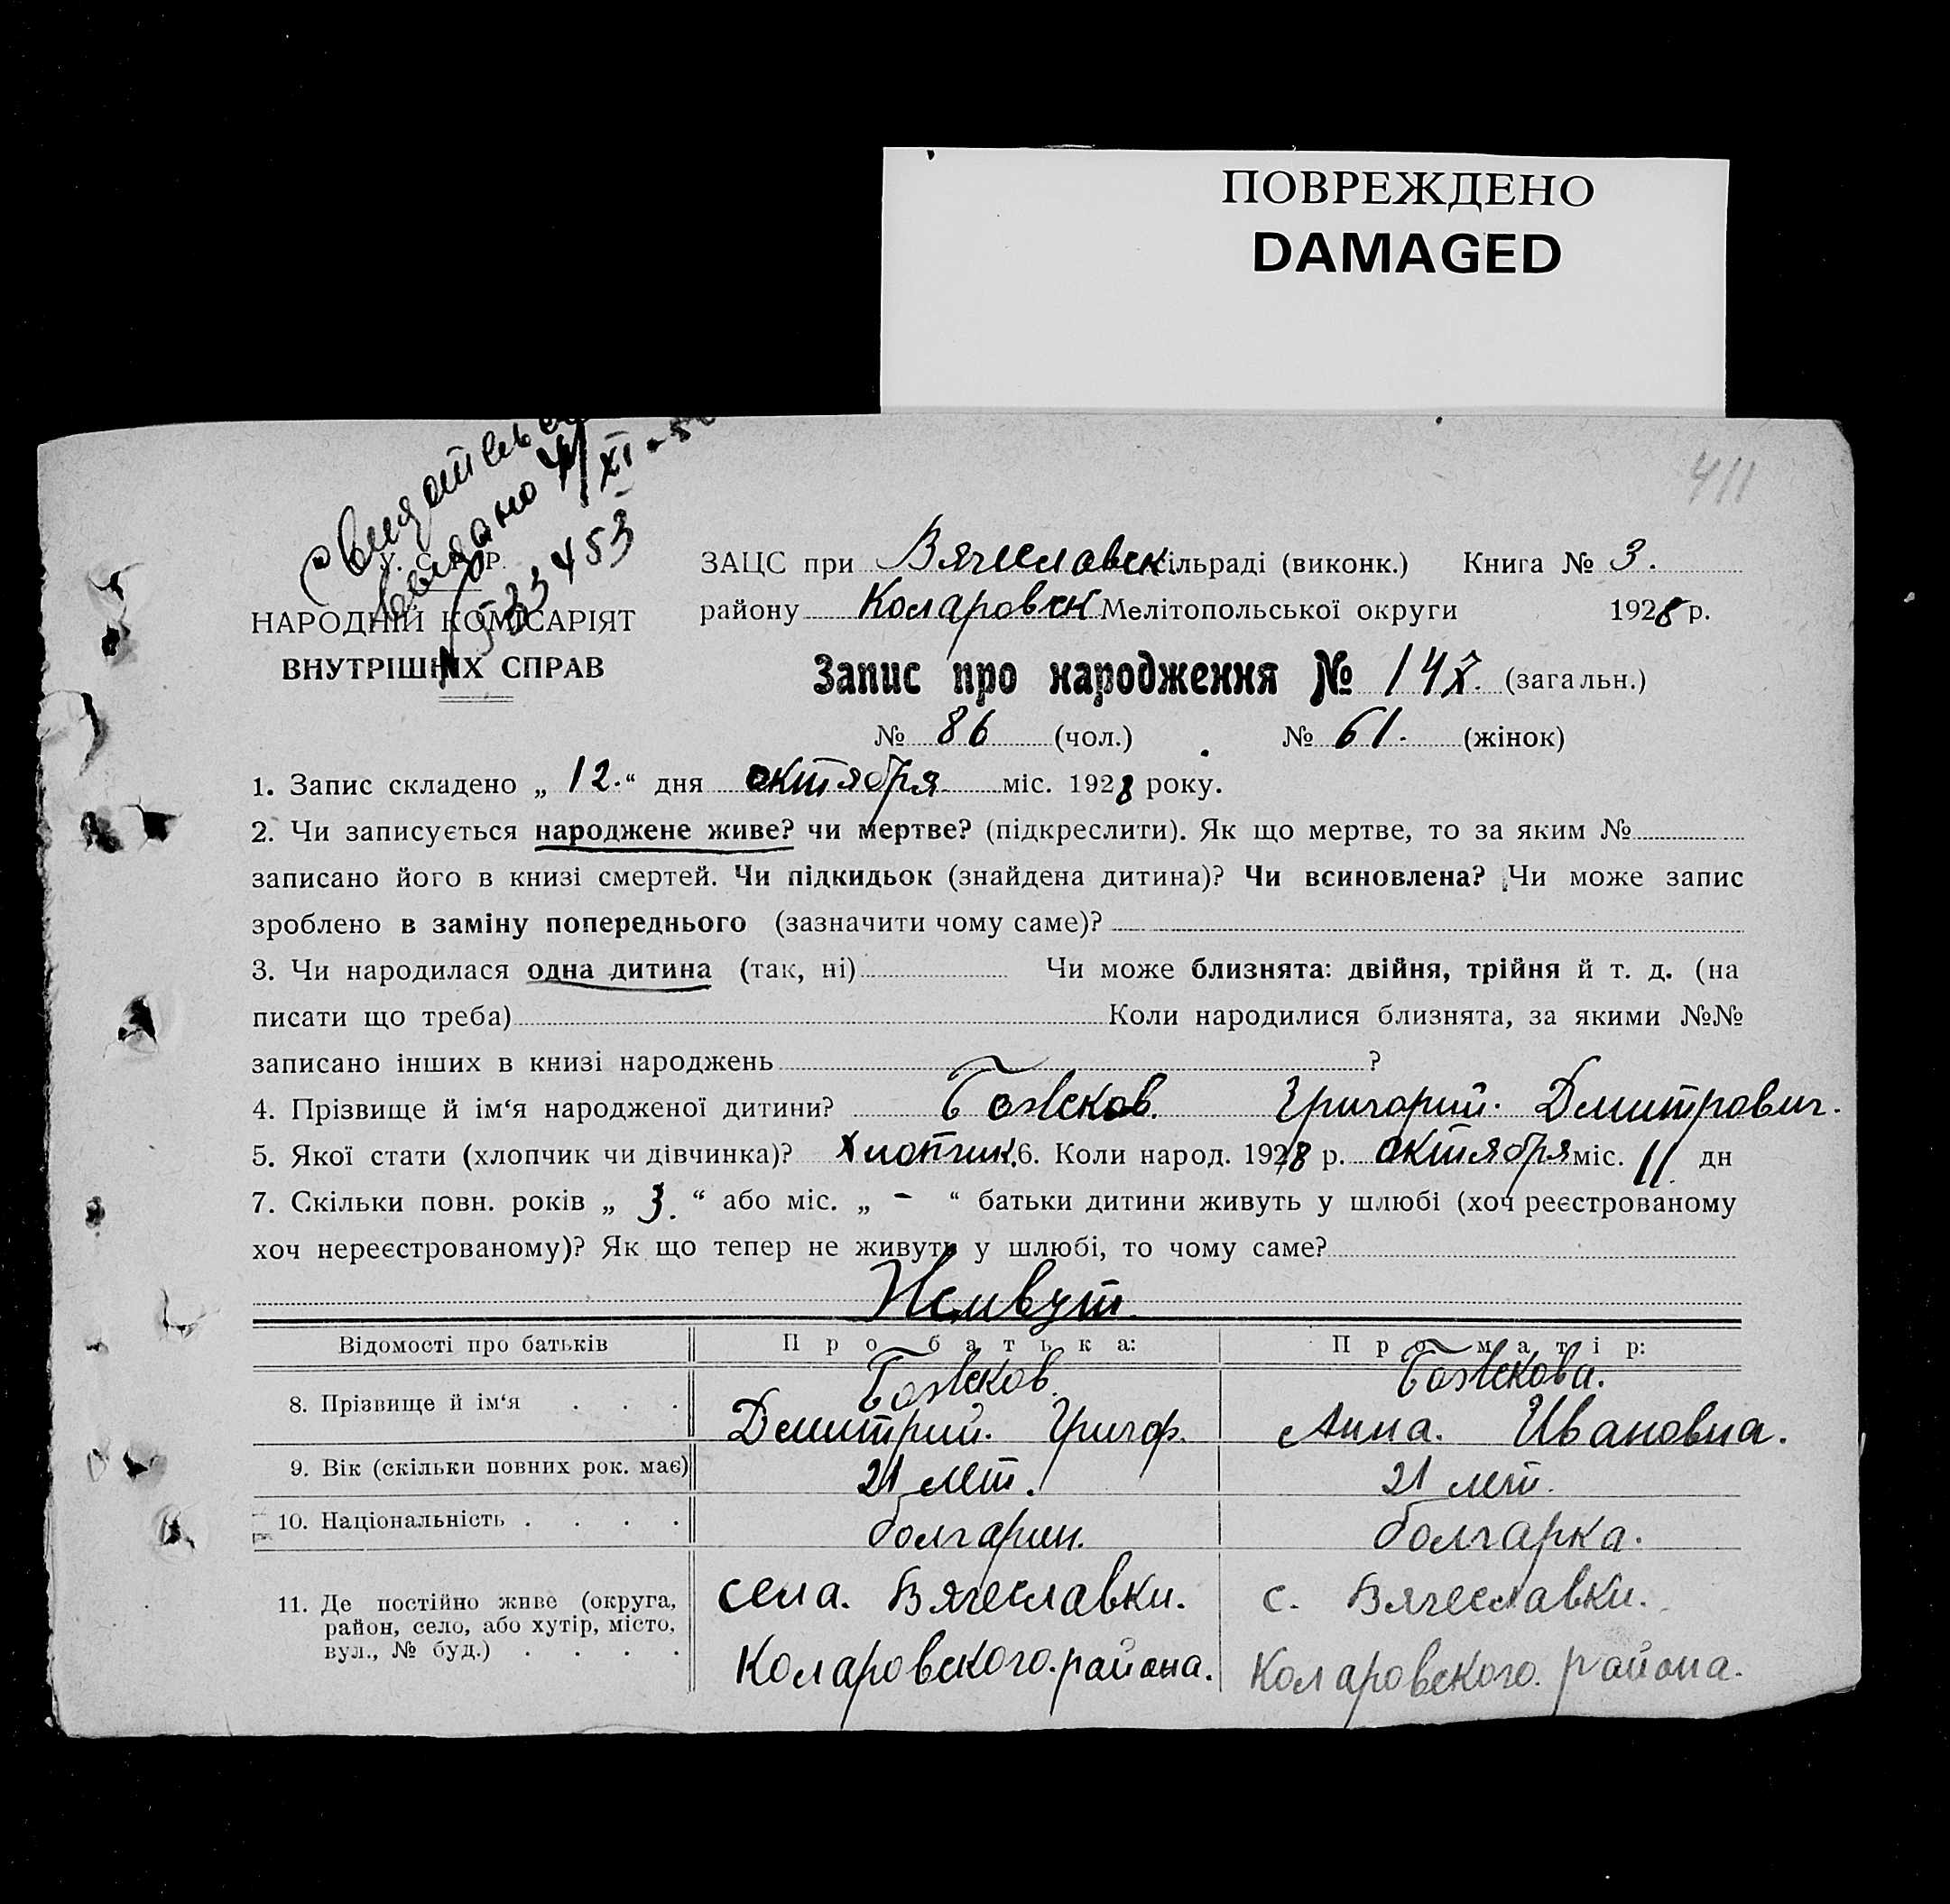 ПОВРЕЖДЕНО
DAMAGED
411
выдано 4/XI-5
533453
У. С. Р. Р.
НАРОДНІЙ КОМІСАРІЯТ
ВНУТРІШНІХ СПРАВ
ЗАЦС при Вячеславск. сільраді (виконк.) Книга № 3.
району Коларовск Мелітопольської округи 1928 р.
Запис про народження № 147. (загальн.)
№ 86 (чол.) № 61. (жінок)
1. Запис складено „ 12. “ дня октября міс. 1928 року.
2. Чи записується народжене живе? чи мертве? (підкреслити). Як що мертве, то за яким №
записано його в книзі смертей. Чи підкидьок (знайдена дитина)? Чи всиновлена? Чи може запис
зроблено в заміну попереднього (зазначити чому саме)?
3. Чи народилася одна дитина (так, ні) Чи може близнята: двійня, трійня й т. д. (на
писати що треба) Коли народилися близнята, за якими №№
записано інших в книзі народжень ?
4. Прізвище й ім‘я народженої дитини? Божков. Григорий. Дмитрович.
5. Якої стати (хлопчик чи дівчинка)? Хлопчик. 6. Коли народ. 1928 р. октября міс. 11 дн
7. Скільки повн. років „ 3. “ або міс. „ - “ батьки дитини живуть у шлюбі (хоч реєстрованому
хоч нереєстрованому)? Як що тепер не живуть у шлюбі, то чому саме?
Живут
Відомості про батьків Про батька: Про матір:
8. Прізвище й ім‘я . . . Божков. Дмитрий. Григор. Божкова. Анна. Ивановна.
9. Вік (скільки повних рок. має) 21 лет. 21 лет.
10. Національність . . . . болгарин. болгарка.
11. Де постійно живе (округа, район, село, або хутір, місто, вул., № буд.) . . . . села. Вячеславки. Коларовского. района. с. Вячеславки. Коларовского. района.